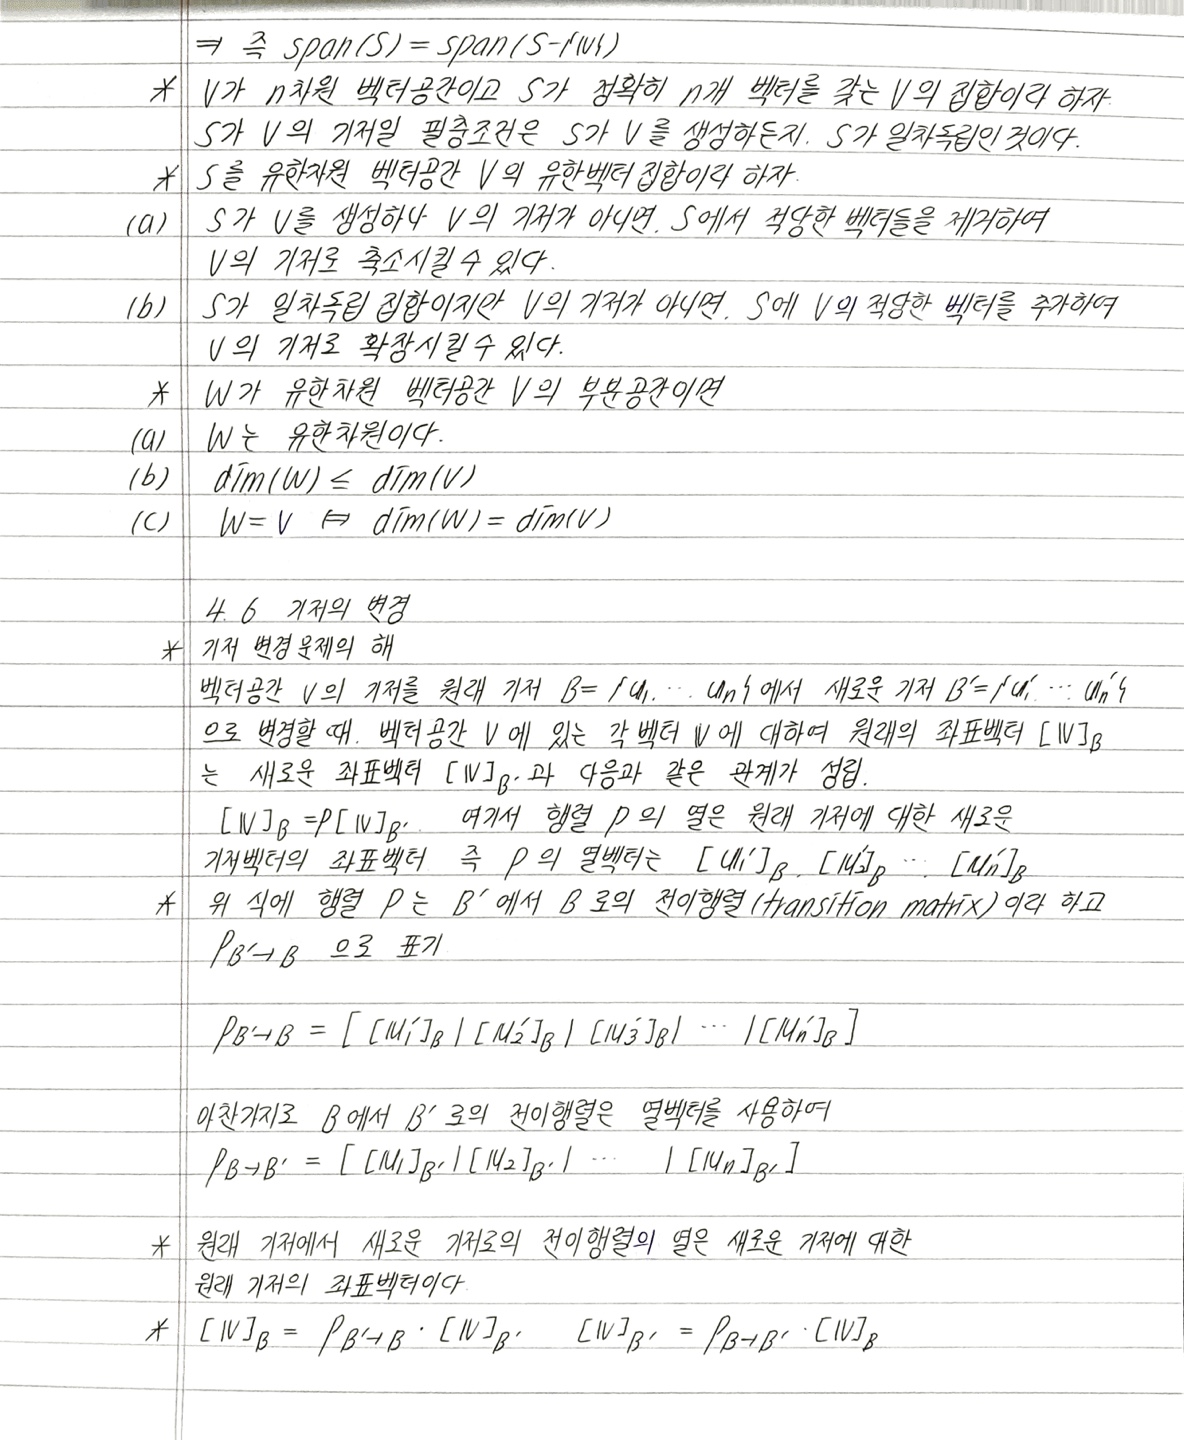 ⇒ 즉 span(S) = span(S-{𝕧})
* V가 n차원 벡터공간이고 S가 정확히 n개 벡터를 갖는 V의 집합이라 하자.
S가 V의 기저일 필충조건은 S가 V를 생성하든지, S가 일차독립인 것이다.
* S를 유한차원 벡터공간 V의 유한벡터 집합이라 하자.
(a) S가 V를 생성하나 V의 기저가 아니면, S에서 적당한 벡터들을 제거하여
V의 기저로 축소시킬 수 있다.
(b) S가 일차독립 집합이지만 V의 기저가 아니면, S에 V의 적당한 벡터를 추가하여
V의 기저로 확장시킬 수 있다.
* W가 유한차원 벡터공간 V의 부분공간이면
(a) W는 유한차원이다.
(b) dim(W) ≤ dim(V)
(c) W = V ⇔ dim(W) = dim(V)
4.6 기저의 변경
* 기저 변경문제의 해
벡터공간 V의 기저를 원래 기저 B = {𝕦₁, ⋯ 𝕦ₙ}에서 새로운 기저 B′ = {𝕦₁′, ⋯ 𝕦ₙ′}
으로 변경할 때, 벡터공간 V에 있는 각 벡터 𝕧에 대하여 원래의 좌표벡터 [𝕧]_B
는 새로운 좌표벡터 [𝕧]_B′과 다음과 같은 관계가 성립.
[𝕧]_B = P[𝕧]_B′ 여기서 행렬 P의 열은 원래 기저에 대한 새로운
기저벡터의 좌표벡터 즉 P의 열벡터는 [𝕦₁′]_B, [𝕦₂′]_B ⋯, [𝕦ₙ′]_B
* 위 식에 행렬 P는 B′에서 B로의 전이행렬(transition matrix)이라 하고
P_B′→B 으로 표기
P_B′→B = [ [𝕦₁′]_B | [𝕦₂′]_B | [𝕦₃′]_B | ⋯ | [𝕦ₙ′]_B ]
마찬가지로 B에서 B′로의 전이행렬은 열벡터를 사용하여
P_B→B′ = [ [𝕦₁]_B′ | [𝕦₂]_B′ | ⋯ | [𝕦ₙ]_B′ ]
* 원래 기저에서 새로운 기저로의 전이행렬의 열은 새로운 기저에 대한
원래 기저의 좌표벡터이다.
* [𝕧]_B = P_B′→B · [𝕧]_B′ [𝕧]_B′ = P_B→B′ · [𝕧]_B